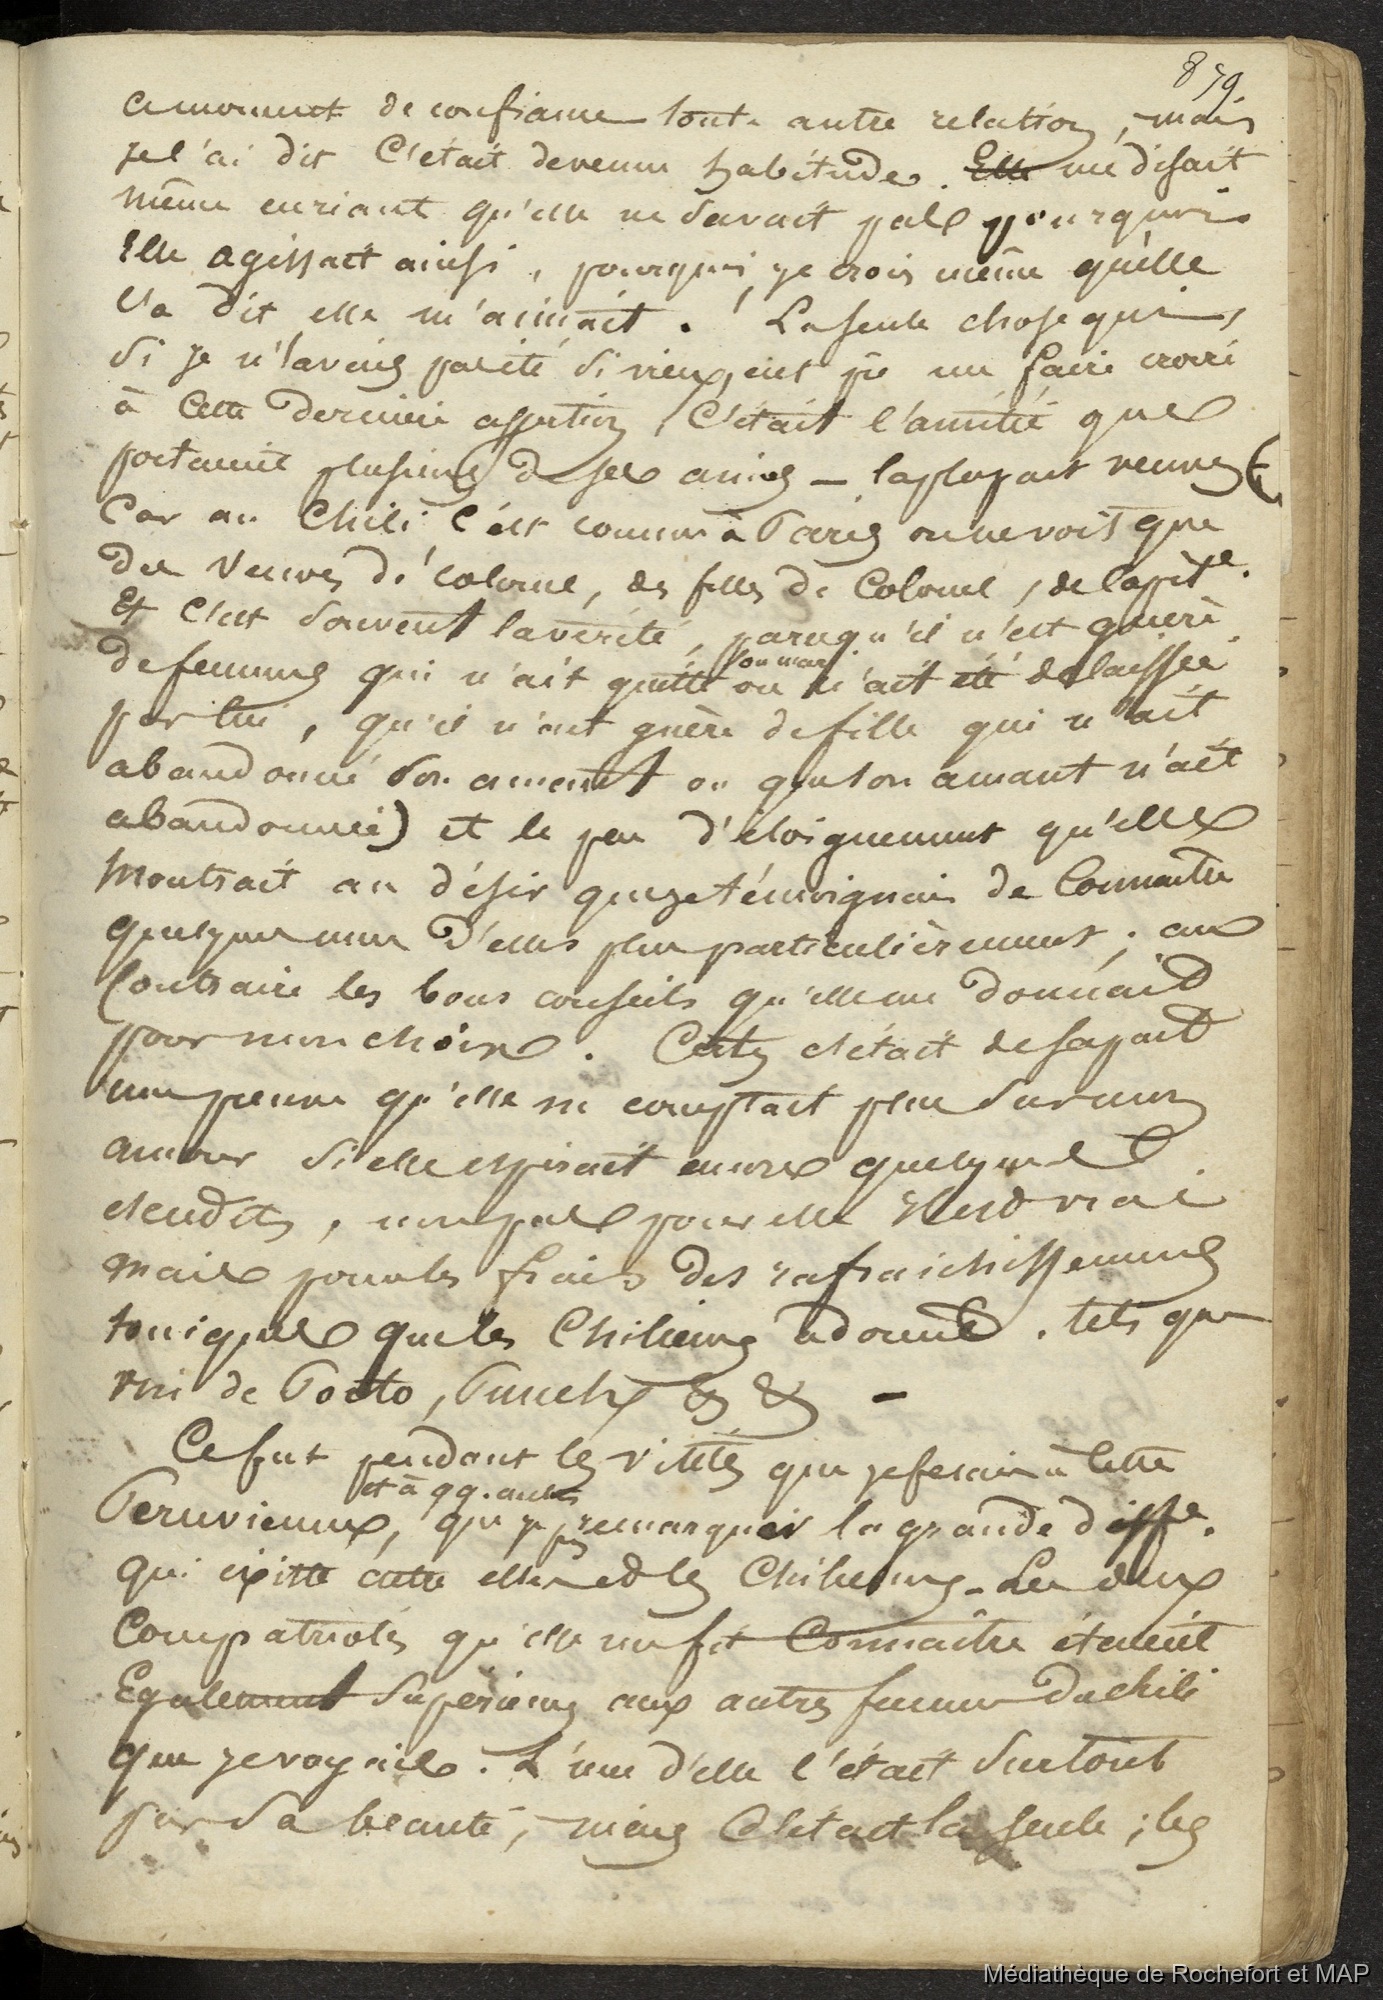 859.
amoment de confiance toute autre relation, mais
je l'ai dit C'était devenu habitude. Elle me disait
même en riant qu'elle ne savait pas pourquoi
Elle agissait ainsi, pourquoi, je crois même qu'elle
l'a dit elle m'aimait. La seule chose qui,
Si je n'avais pas été si vieux, eut pu me faire croire
à Cette dernière assertion, C'était l'amitié que
portaient plusieurs de ses amies – la plupart veuves (
Car au Chili c'est comme à Paris on ne voit que
des Veuves de colonel, des filles de Colonel, de Capite.
Et C'est souvent la vérité, parcequ'il n'est guère
son mari
de femmes qui n'ait quitté ou n'ait été délaissée
par lui, qu'il n'est guère de fille qui n'ait
abandonné son amant ou que son amant n'ait
abandonnée) et le peu d'éloignement qu'elle
Montrait au désir que je témoignais de Connaitre
quelqu'une d'elles plus particulièrement; au
Contraire les bons conseils qu'elle me donnait
pour mon choix. Certes c'était de sa part
une preuve qu'elle ne comptait plus sur mon
amour Si elle espérait encore quelques
, non pas pour elle il est vrai
mais pour les frais des rafraichissemens
toniques que les Chiliennes adorent. tels que
vin de Porto, Punch & & –
Ce fut pendant les visites que je fesais à Cette
et à qq. autres
Peruvienne, que je pus remarquer la grande diffe.
qui existe entre elles et les Chiliennes. Les deux
Compatriotes qu'elle me fit Connaître étaient
Egalement supérieures aux autres femmes du chili
que je voyais. L'une d'elle l'était surtout
par sa beauté, mais C'était la seule; les
Médiathèque de Rochefort et MAP